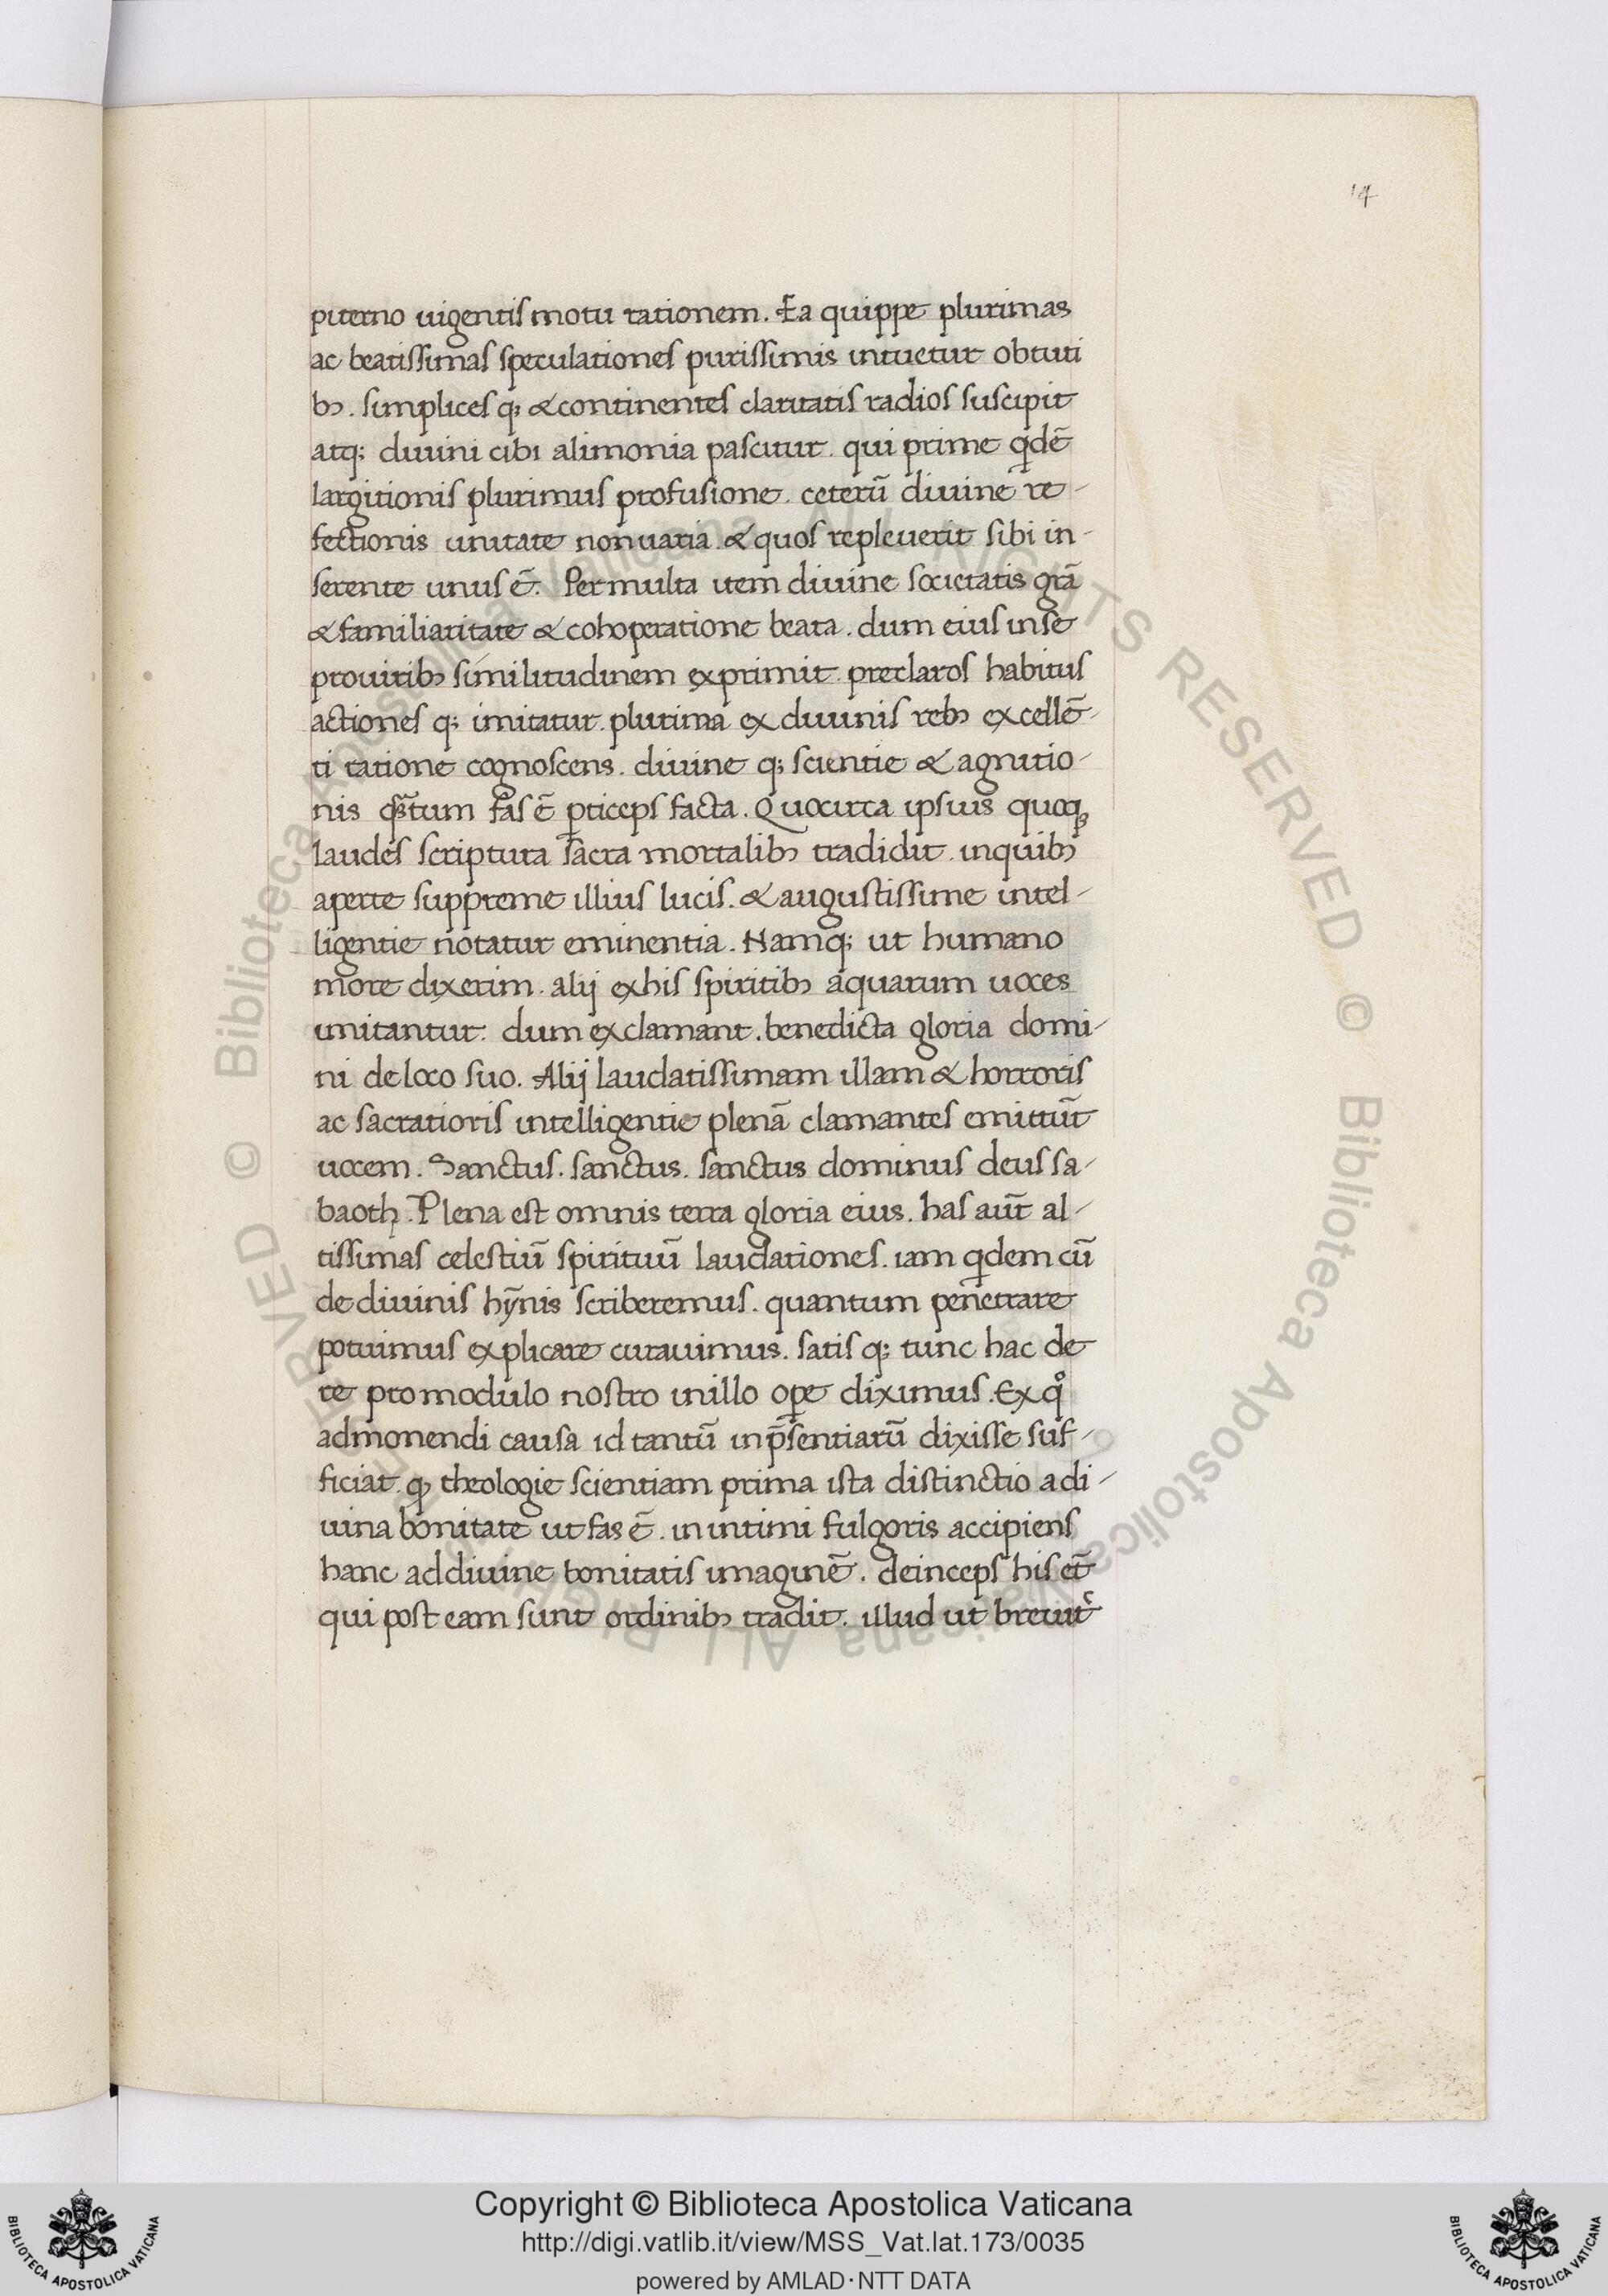 14
piterno uigentis motu rationem. Ea quippe plurimas
ac beatissimas speculationes purissimis intuetur obtuti
bꝫ. simplices qꝫ & continentes claritatis radios suscipit
atqꝫ diuini cibi alimonia pascitur. qui prime qͥdē
largitionis plurimus profusione. ceterū diuine re-
fectionis unitate non uaria. & quos repleuerit sibi in-
serente unus ē. Permulta item diuine societatis grā
& familiaritate & cohoperatione beata. dum eius in se
pro uiribꝫ similitudinem exprimit. preclaros habitus
actiones qꝫ imitatur. plurima ex diuinis rebꝫ excellē-
ti ratione cognoscens. diuine qꝫ scientie & agnitio-
nis qꝫtum fas ē ꝑticeps facta. Quocirca ipsius quoqꝫ
laudes scriptura sacra mortalibꝫ tradidit. in quibꝫ
aperte suppreme illius lucis. & augustissime intel-
ligentie notatur eminentia. Namqꝫ ut humano
more dixerim. alij ex his spiritibꝫ aquarum uoces
imitantur. dum exclamant. benedicta gloria domi-
ni de loco suo. Alij laudatissimam illam & horroris
ac sacratioris intelligentie plenā clamantes emittūt
uocem. Sanctus. sanctus. sanctus dominus deus sa-
baoth. Plena est omnis terra gloria eius. has aut̄ al-
tissimas celestiū spirituū laudationes. iam qͥdem cū
de diuinis hȳnis scriberemus. quantum penetrare
potuimus explicare curauimus. satis qꝫ tunc hac de
re pro modulo nostro in illo oꝑe diximus. Ex qͦ
admonendi causa id tantū in p̄sentiarū dixisse suf-
ficiat. ꝙ theologie scientiam prima ista distinctio a di-
uina bonitate ut fas ē. in intimi fulgoris accipiens
hanc ad diuine bonitatis imaginē. deinceps his et̄
qui post eam sunt ordinibꝫ tradit. illud ut breuit᷑
© Biblioteca Apostolica Vaticana ALL RIGHTS RESERVED
© Biblioteca Apostolica Vaticana ALL RIGHTS RESERVED
BIBLIOTECA APOSTOLICA VATICANA
Copyright © Biblioteca Apostolica Vaticana
http://digi.vatlib.it/view/MSS_Vat.lat.173/0035
powered by AMLAD·NTT DATA
BIBLIOTECA APOSTOLICA VATICANA